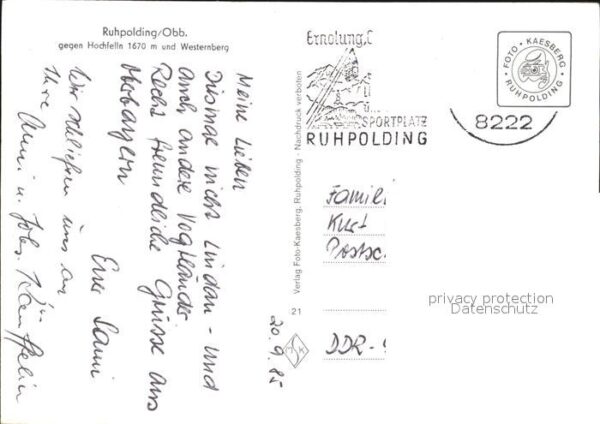 Ruhpolding/Obb.
gegen Hochfelln 1670 m und Westernberg
Meine Lieben
Diesmal nicht Lindau - und
auch andere Vogtländer
Recht freundliche Grüsse aus
Oberbayern
Eure Sanni
Wir schließen uns an
Ihre Anni u. Johs.
20.9.85
Verlag Foto-Kaesberg, Ruhpolding - Nachdruck verboten
21
MSK
Erholung,
SPORTPLATZ
RUHPOLDING
FOTO • KAESBERG • RUHPOLDING •
8222
Famili
Kurt
Postsc
DDR-9
privacy protection
Datenschutz